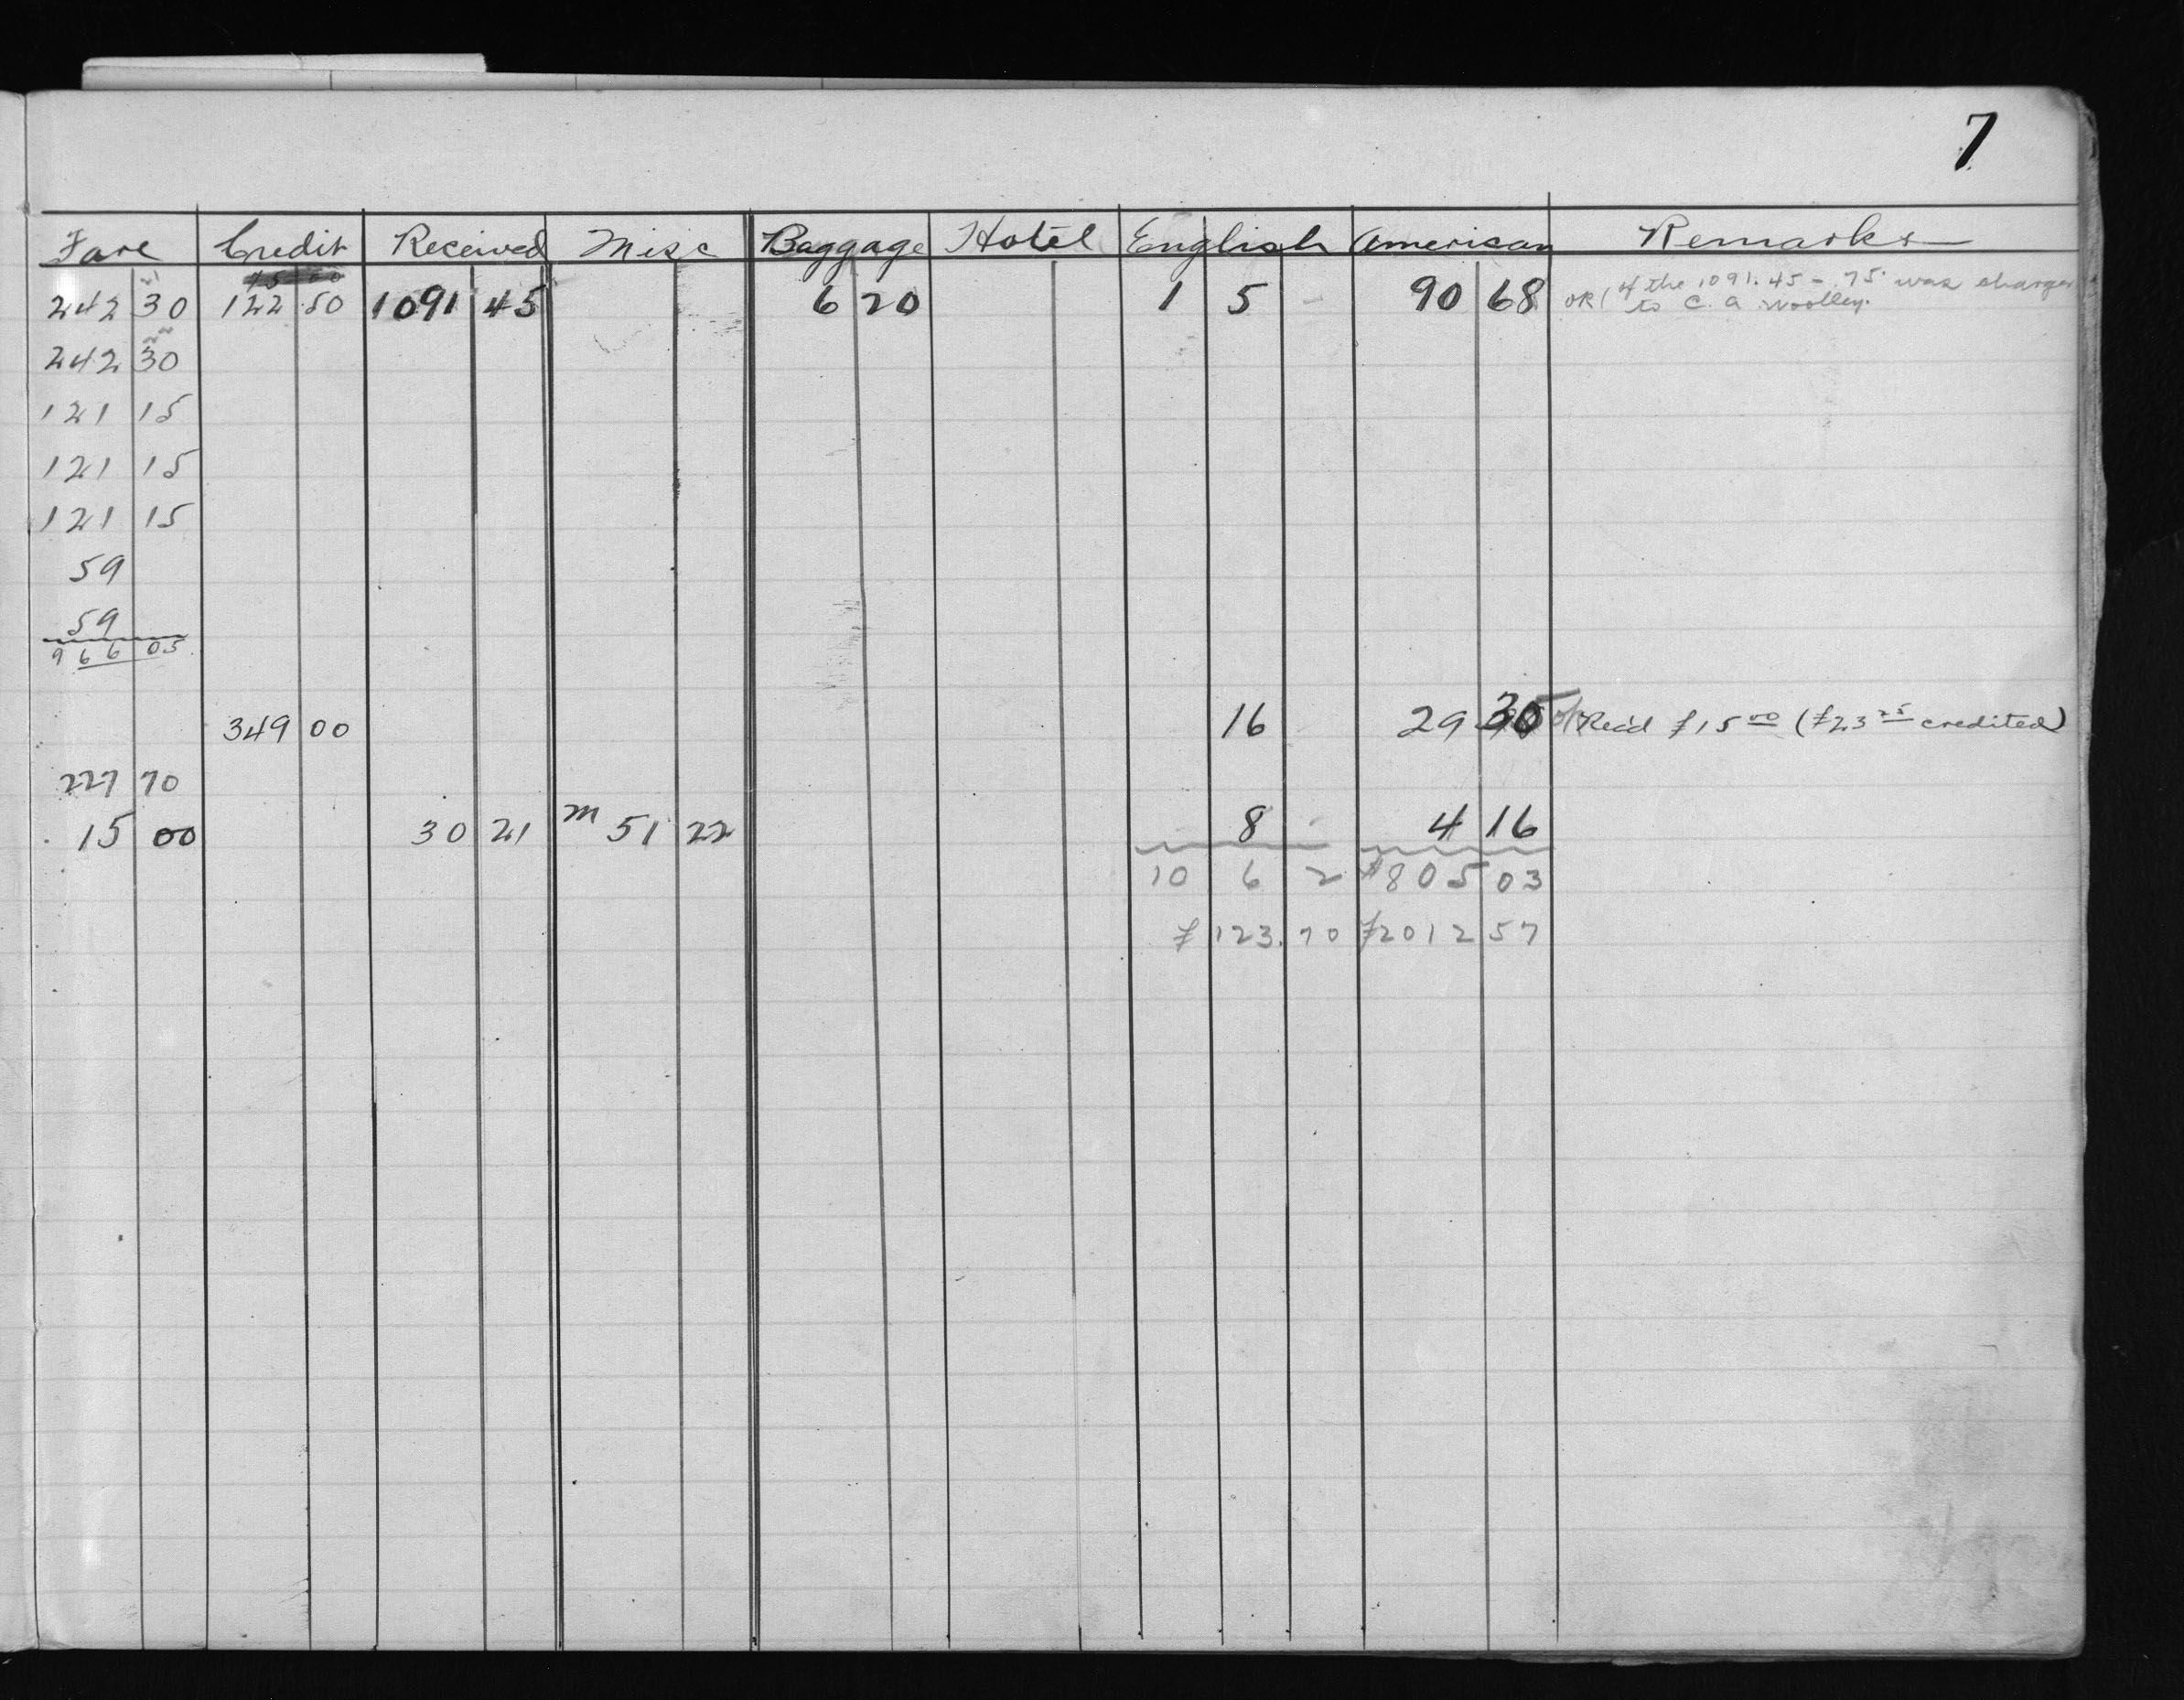 7
Fare Credit Received Misc Baggage Hotel English American Remarks
242 30 122 50 1091 45 6 20 1 5 - 90 68 OK ( of the 1091.45 - 75 was charged
to C. A. Woolley.
242 30
121 15
121 15
121 15
59
59
966 05
349 00 16 29 30 Rec'd £15 00 (£23 25 credited)
227 70
15 00 30 21 m 51 22 8 - 4 16
10 6 2 $805 03
£123.70 £2012 57